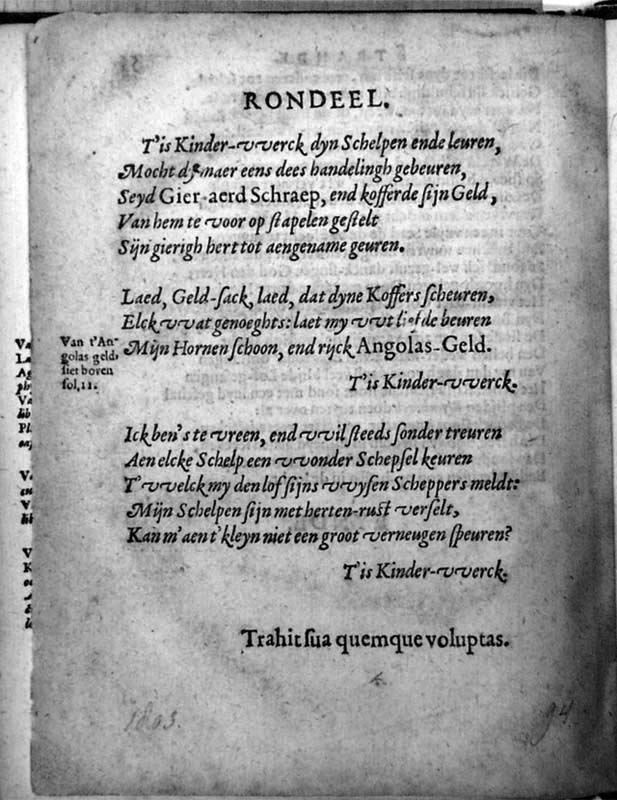 RONDEEL.
T'is Kinder-vverck dyn Schelpen ende leuren,
Mocht dy maer eens dees handelingh gebeuren,
Seyd Gier-aerd Schraep, end kofferde sijn Geld,
Van hem te voor op stapelen gestelt
Sijn gierigh hert tot aengename geuren.
Laed, Geld-sack, laed, dat dyne Koffers scheuren,
Elck vvat genoeghts: laet my vvt liefde beuren
Mijn Hornen schoon, end rijck Angolas-Geld.
T'is Kinder-vverck.
Van t'An-
golas geld,
siet boven
fol, 11.
Ick ben's te vreen, end vvil steeds sonder treuren
Aen elcke Schelp een vvonder Schepsel keuren
T'vvelck my den lof sijns vvysen Scheppers meldt:
Mijn Schelpen sijn met herten-rust verselt,
Kan m'aen t'kleyn niet een groot verneugen speuren?
T'is Kinder-vverck.
Trahit sua quemque voluptas.
94